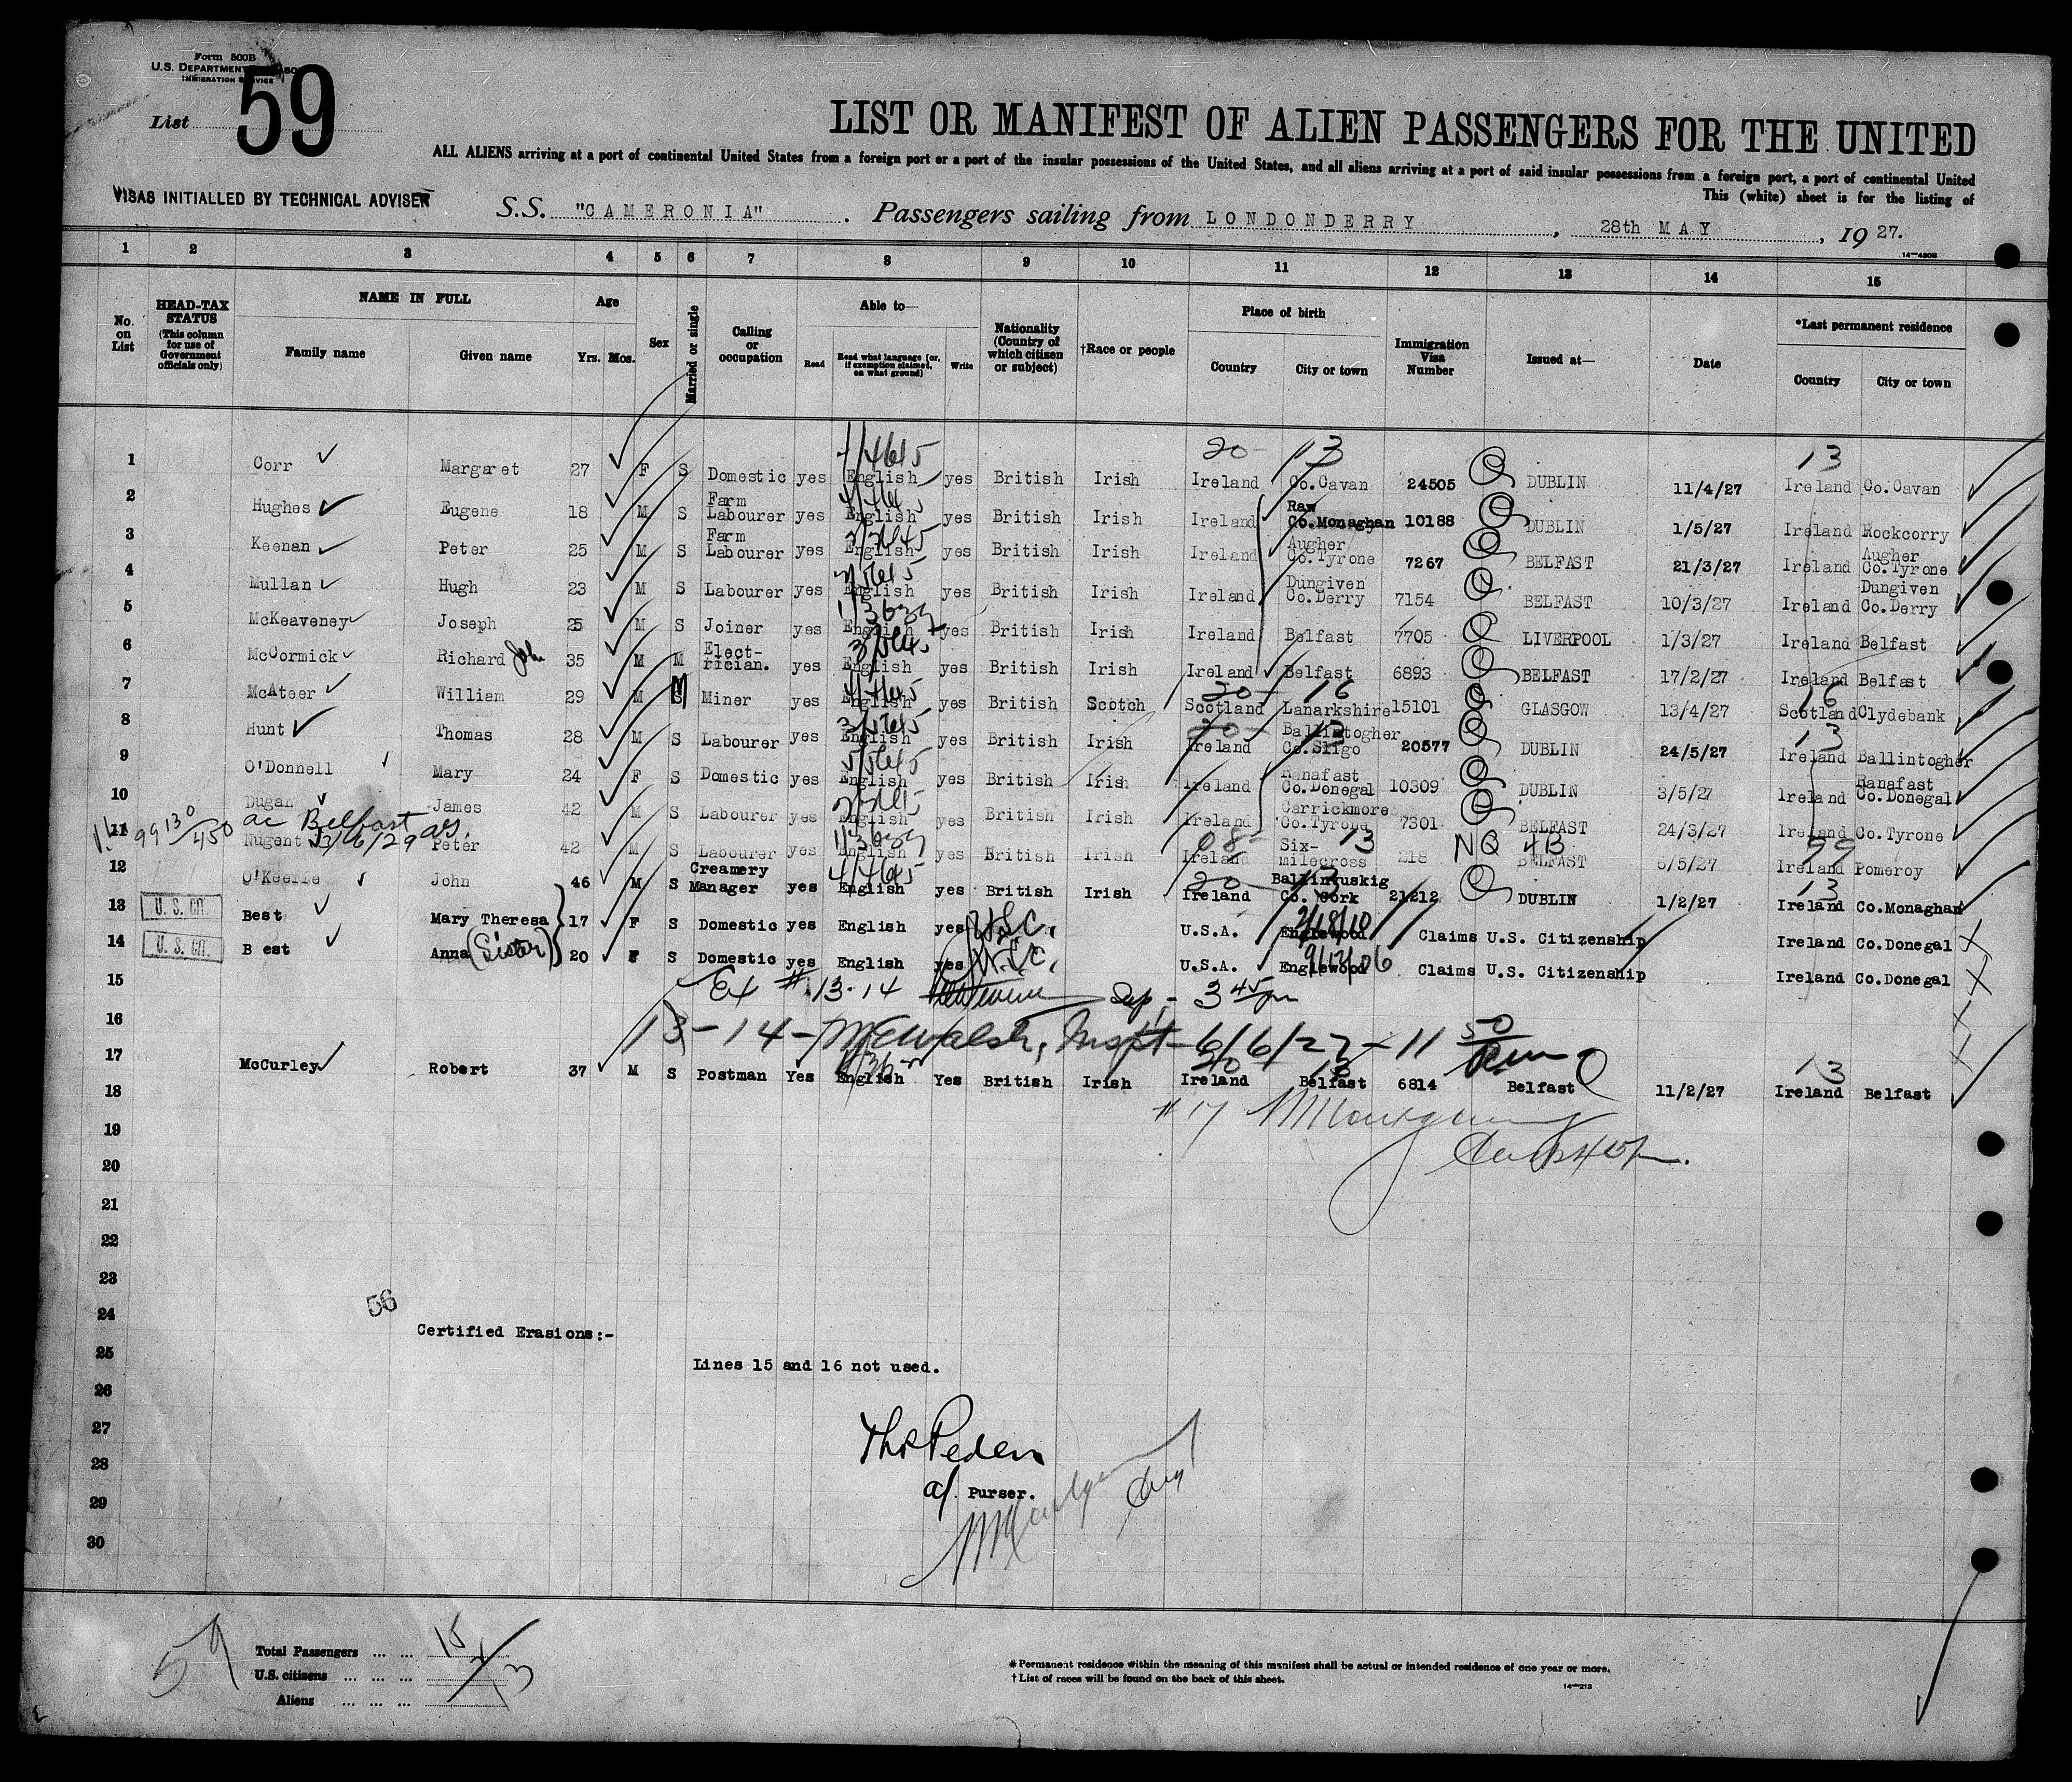 Form 500B
U.S. DEPARTMENT
IMMIGRATION SERVICE
List 59
LIST OR MANIFEST OF ALIEN PASSENGERS FOR THE UNITED
ALL ALIENS arriving at a port of continental United States from a foreign port or a port of the insular possessions of the United States, and all aliens arriving at a port of said insular possessions from a foreign port, a port of continental United
This (white) sheet is for the listing of
VISAS INITIALLED BY TECHNICAL ADVISER
S.S. "CAMERONIA". Passengers sailing from LONDONDERRY, 28th MAY, 19 27.
14—430B
1 2 3 4 5 6 7 8 9 10 11 12 13 14 15
No. on List
HEAD-TAX STATUS (This column for use of Government officials only)
NAME IN FULL
Family name Given name
Age
Yrs. Mos.
Sex
Married or single
Calling or occupation
Able to—
Read Read what language [or, if exemption claimed, on what ground] Write
Nationality (Country of which citizen or subject)
†Race or people
Place of birth
Country City or town
Immigration Visa Number
Issued at—
Date
*Last permanent residence
Country City or town
20 13 13
1 Corr Margaret 27 F S Domestic yes English yes British Irish Ireland Co.Cavan 24505 DUBLIN 11/4/27 Ireland Co.Cavan
2 Hughes Eugene 18 M S Farm Labourer yes English yes British Irish Ireland Raw Co.Monaghan 10188 DUBLIN 1/5/27 Ireland Rockcorry
3 Keenan Peter 25 M S Farm Labourer yes English yes British Irish Ireland Augher Co.Tyrone 7267 BELFAST 21/3/27 Ireland Augher Co.Tyrone
4 Mullan Hugh 23 M S Labourer yes English yes British Irish Ireland Dungiven Co.Derry 7154 BELFAST 10/3/27 Ireland Dungiven Co.Derry
5 McKeaveney Joseph 25 M S Joiner yes English yes British Irish Ireland Belfast 7705 LIVERPOOL 1/3/27 Ireland Belfast
6 McCormick Richard John 35 M M Elect-rician. yes English yes British Irish Ireland Belfast 6893 BELFAST 17/2/27 Ireland Belfast
20 16 16
7 McAteer William 29 M M Miner yes English yes British Scotch Scotland Lanarkshire 15101 GLASGOW 13/4/27 Scotland Clydebank
20 13 13
8 Hunt Thomas 28 M S Labourer yes English yes British Irish Ireland Ballintogher Co.Sligo 20577 DUBLIN 24/5/27 Ireland Ballintogher
9 O'Donnell Mary 24 F S Domestic yes English yes British Irish Ireland Ranafast Co.Donegal 10309 DUBLIN 3/5/27 Ireland Ranafast Co.Donegal
10 Dugan James 42 M S Labourer yes English yes British Irish Ireland Carrickmore Co.Tyrone 7301 BELFAST 24/3/27 Ireland Co.Tyrone
99 130/450 ac Belfast 3/6/29
11 Nugent Peter 42 M S Labourer yes English yes British Irish Ireland Six-milecross 218 NQ 4B BELFAST 5/5/27 Ireland Pomeroy
12 O'Keefe John 46 M S Creamery Manager yes English yes British Irish Ireland Ballinvuskig Co. Cork 21212 DUBLIN 1/2/27 Ireland Co.Monaghan
13 U. S. CIT. Best Mary Theresa 17 F S Domestic yes English yes U.S.C. U.S.A. Englewood 2/18/10 Claims U.S. Citizenship Ireland Co.Donegal
14 U. S. CIT. Best Anna (Sister) 20 F S Domestic yes English yes U.S.C. U.S.A. Englewood 9/12/06 Claims U.S. Citizenship Ireland Co.Donegal
15 Ex # 13-14 3 45 pm
16 13-14- Walsh, Inspt- 6/6/27 - 11 50
17 McCurley Robert 37 M S Postman Yes English Yes British Irish Ireland Belfast 6814 Belfast 11/2/27 Ireland Belfast
18 # 17
19
20
21
22
23
24
56
Certified Erasions:-
25 Lines 15 and 16 not used.
26
27
Thos Peden
28
a/. Purser.
29
30
59
Total Passengers 15
U.S. citizens 2
Aliens 13
* Permanent residence within the meaning of this manifest shall be actual or intended residence of one year or more.
† List of races will be found on the back of this sheet.
14—213